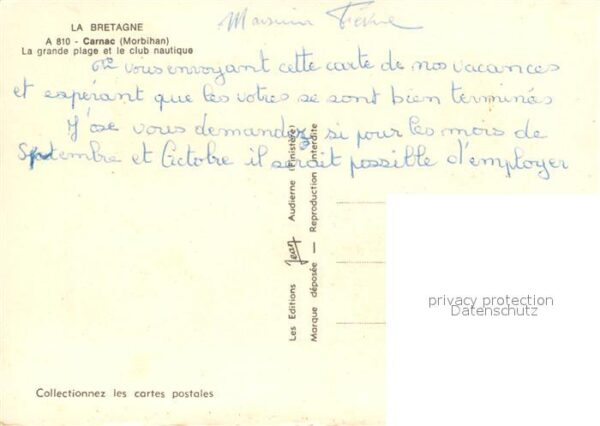 LA BRETAGNE
A 810 - Carnac (Morbihan)
La grande plage et le club nautique
Monsieur
vous envoyant cette carte de nos vacances
et espérant que les votres se sont bien terminées
J'ose vous demandez si pour les mois de
Septembre et Octobre il serait possible d'employer
Les Editions Jean Audierne (Finistère)
Marque déposée — Reproduction interdite
privacy protection
Datenschutz
Collectionnez les cartes postales